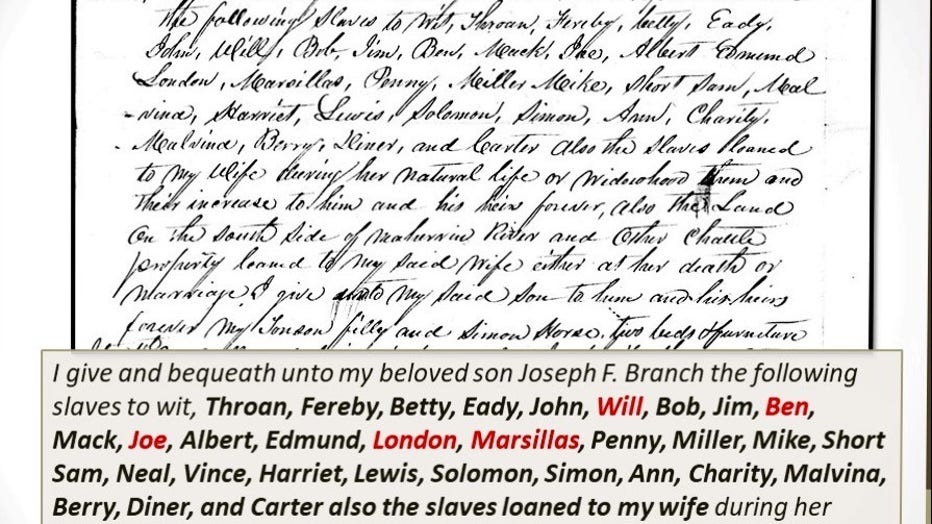 the following slaves to wit, Throan, Fereby, Betty, Eady,
John, Will, Bob, Jim, Ben, Mack, Joe, Albert Edmund
London, Marsillas, Penny, Miller Mike, Short Sam, Mal
-vina, Harriet, Lewis, Solomon, Simon, Ann, Charity,
Malvina, Berry, Diner, and Carter also the slaves loaned
to my Wife during her natural life or widowhood them and
their increase to him and his heirs forever, also the Land
on the south side of River and other Chattle
property loaned to my said wife either at her death or
marriage I give unto my said son to him and his heirs
forever my filly and Simon Horse, two beds & furniture
I give and bequeath unto my beloved son Joseph F. Branch the following
slaves to wit, Throan, Fereby, Betty, Eady, John, Will, Bob, Jim, Ben,
Mack, Joe, Albert, Edmund, London, Marsillas, Penny, Miller, Mike, Short
Sam, Neal, Vince, Harriet, Lewis, Solomon, Simon, Ann, Charity, Malvina,
Berry, Diner, and Carter also the slaves loaned to my wife during her